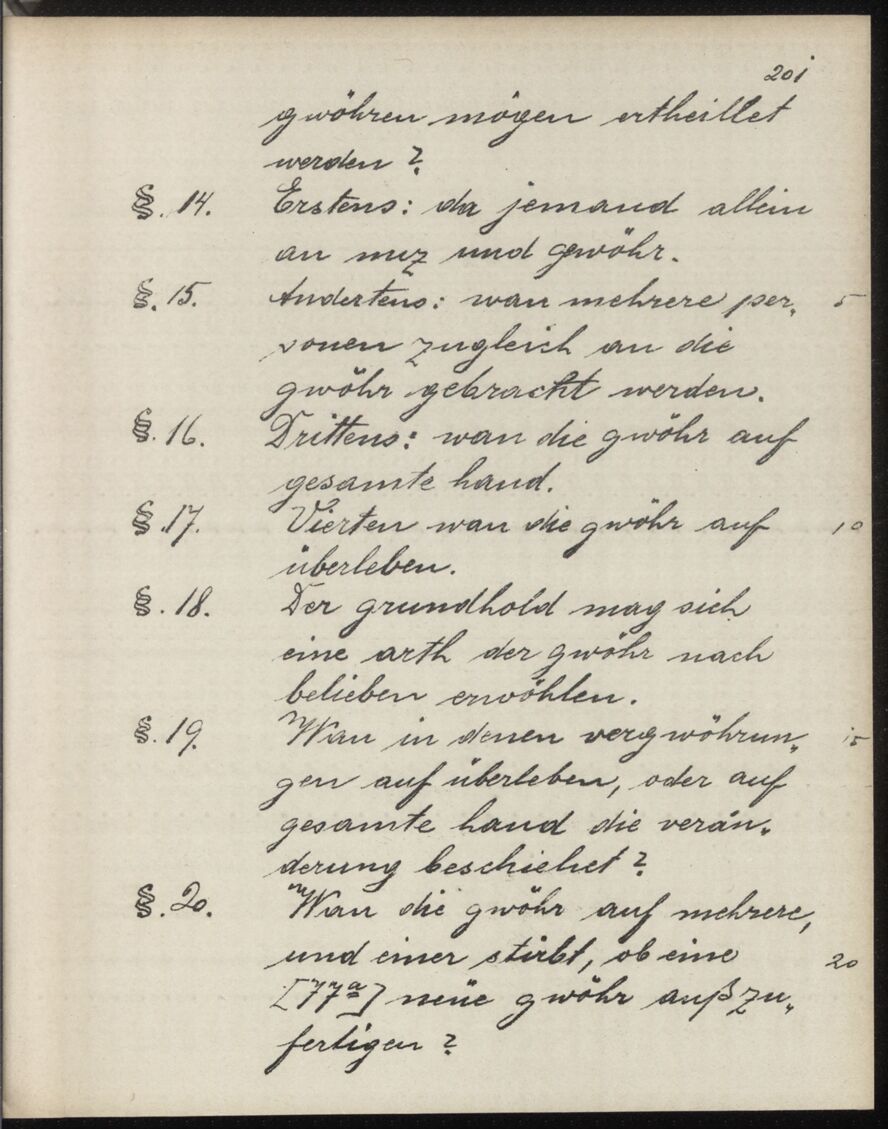 201
gwöhren mögen ertheillet
werden?
§. 14. Erstens: da jemand allein
an nuz und gewöhr.
§. 15. Andertens: wan mehrere per„ 5
sonen zugleich an die
gwöhr gebracht werden.
§. 16. Drittens: wan die gwöhr auf
gesamte hand.
§. 17. Vierten wan die gwöhr auf 10
überleben.
§. 18. Der grundhold mag sich
eine arth der gwöhr nach
belieben erwöhlen.
§. 19. Wan in denen vergwöhrun„ 15
gen auf überleben, oder auf
gesamte hand die verän„
derung beschiehet?
§. 20. Wan die gwöhr auf mehrere,
und einer stirbt, ob eine 20
[77a] neüe gwöhr außzu„
fertigen?